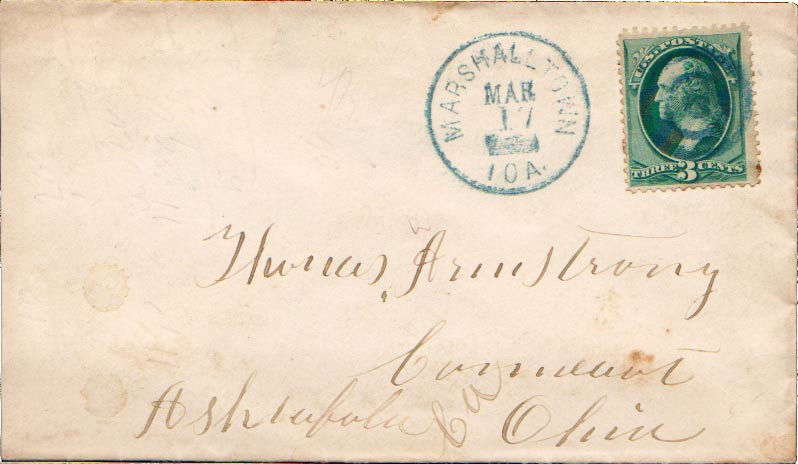 MARSHALLTOWN
MAR
17
IOA.
U.S. POSTAGE
THREE 3 CENTS
Thomas Armstrong
Conneaut
Ashtabula Co
Ohio